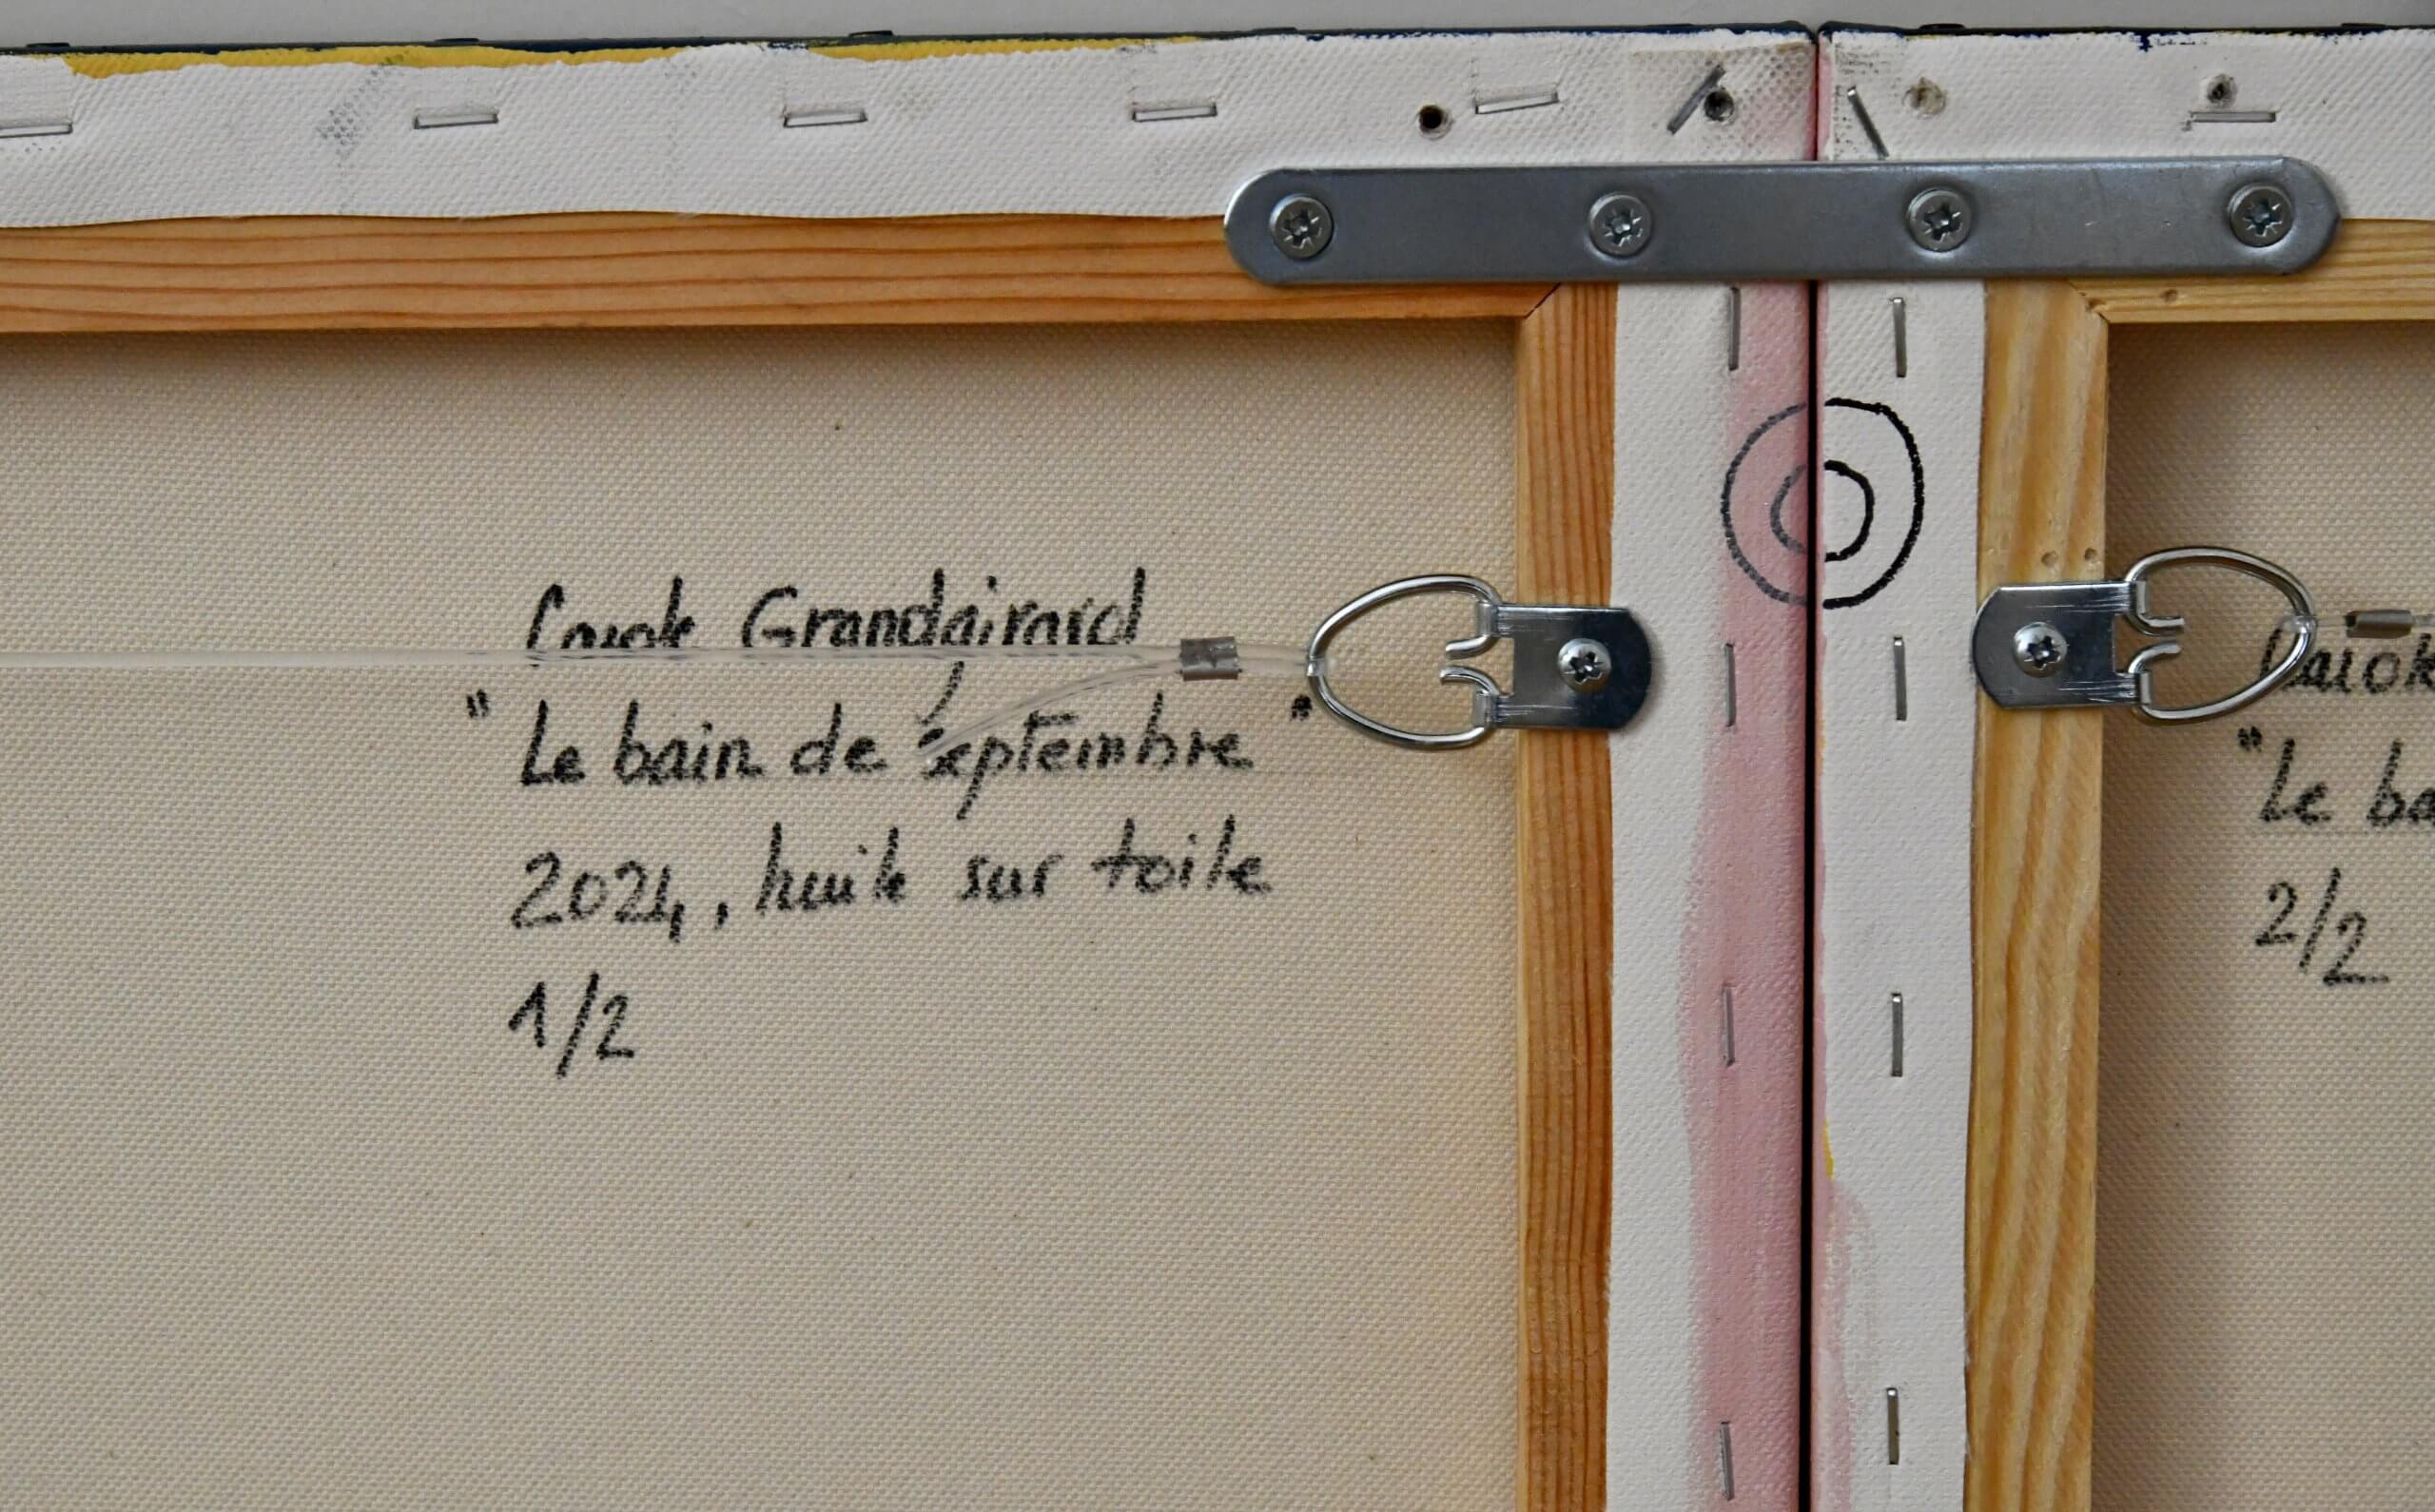 Carole Grandgirard
"Le bain de septembre"
2024, huile sur toile
1/2
Carole
"Le ba
2/2